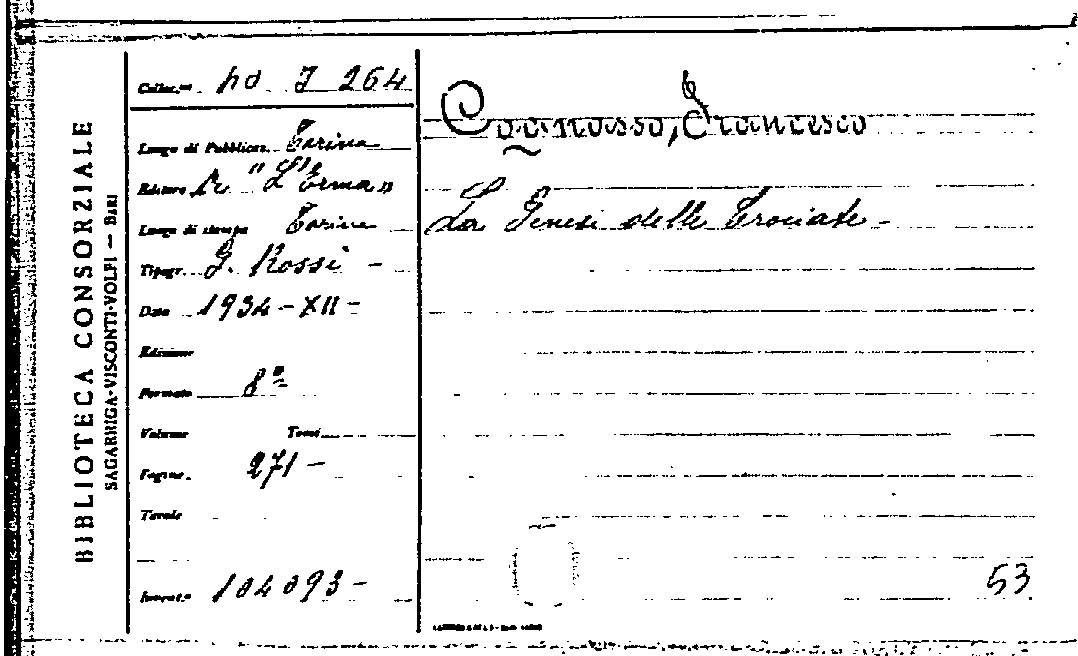 BIBLIOTECA CONSORZIALE
SAGARRIGA-VISCONTI-VOLPI — BARI
Colloc.ne hd J 264
Luogo di Pubblicaz. Torino
Editore "L'Erma"
Luogo di stampa Torino
Tipogr. G. Rossi -
Data 1934 - XII -
Edizione
Formato 8°
Volume Tomi
Pagine 271 -
Tavole
Invent.º 104093 -
Cognasso, Francesco
La Genesi delle Crociate -
53